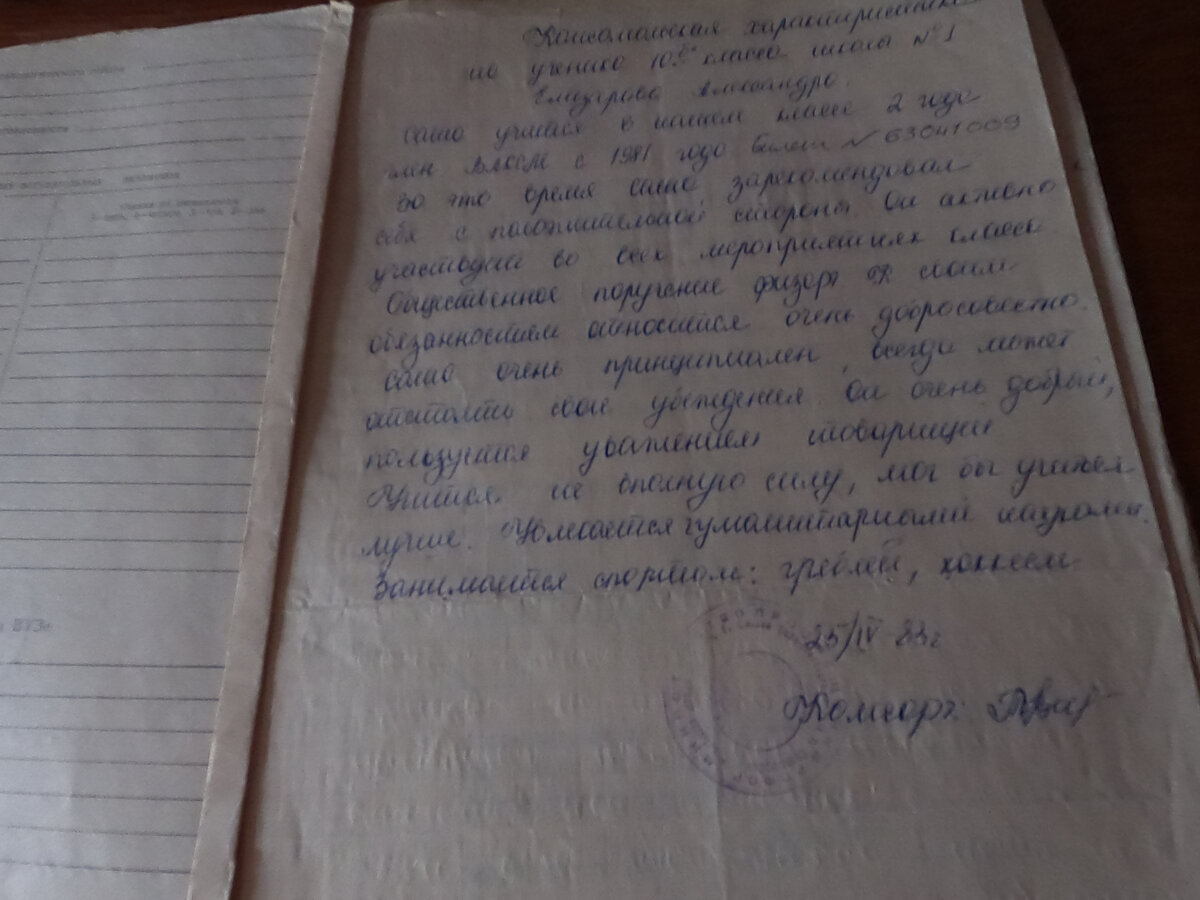 Комсомольская характеристика
на ученика 10 класса школы №1
Елизарова Александра.
Саша учится в нашем классе 2 года
член ВЛКСМ с 1981 года билет № 63041009
За это время Саша зарекомендовал
себя с положительной стороны. Он активно
участвует во всех мероприятиях класса.
Общественное поручение физорг. К своим
обязанностям относится очень добросовестно.
Саша очень принципиален, всегда может
отстоять свои убеждения. Он очень добрый,
пользуется уважением товарищей
Учится не вполную силу, мог бы учиться
лучше. Увлекается гуманитарными науками.
Занимается спортом: греблей, хоккеем
25/IV 83г
Комсорг: